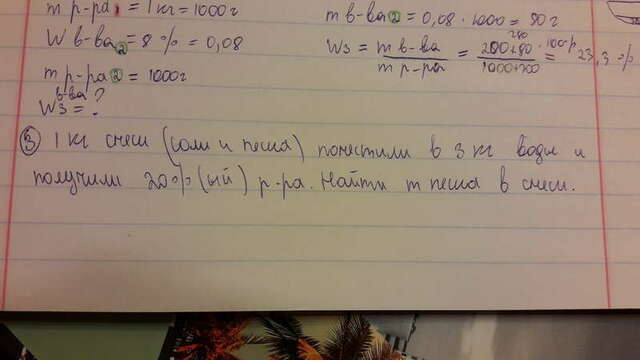 m р-ра₁ = 1 кг = 1000 г
W в-ва₂ = 8 % = 0,08
m р-ра₂ = 1000 г
W₃ в-ва = ?
m в-ва₂ = 0,08 · 1000 = 80 г
W₃ = m в-ва / m р-ра = 280 200+80 / 1000+200 · 100% = 23,3 %
③ 1 кг смеси (соли и песка) поместили в 3 кг воды и
получили 20% (ый) р-ра. Найти m песка в смеси.